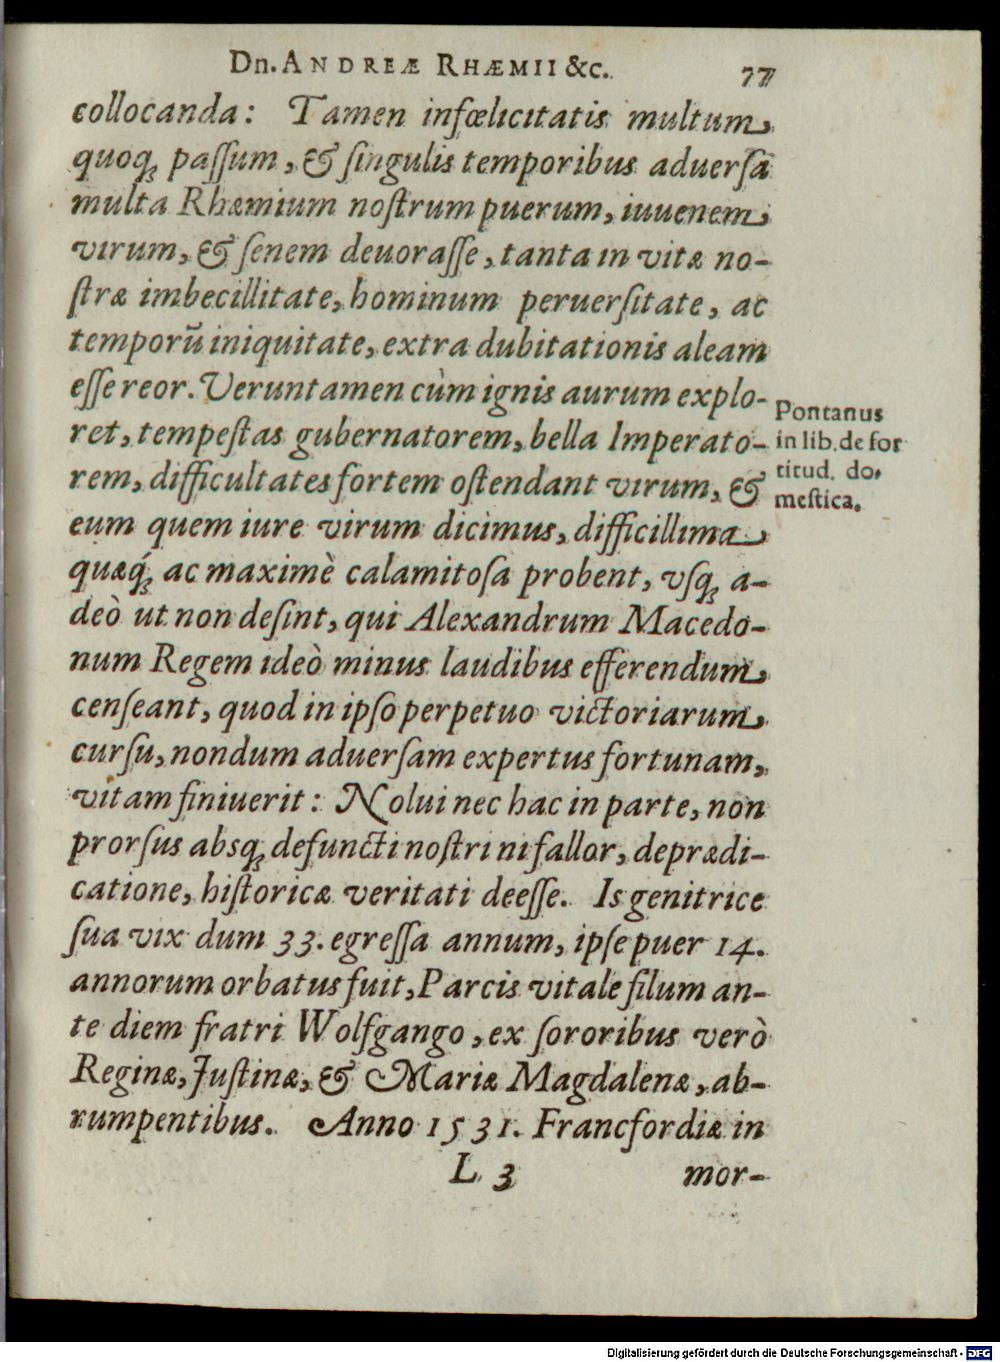 Dn. ANDREÆ RHÆMII &c. 77
collocanda: Tamen infœlicitatis multum
quoqꝫ paſſum, & ſingulis temporibus aduerſa
multa Rhæmium noſtrum puerum, iuuenem,
virum, & ſenem deuoraſſe, tanta in vitæ no-
ſtræ imbecillitate, hominum peruerſitate, ac
temporũ iniquitate, extra dubitationis aleam
eſſe reor. Veruntamen cùm ignis aurum explo-
ret, tempeſtas gubernatorem, bella Imperato-
rem, difficultates fortem oſtendant virum, &
eum quem iure virum dicimus, difficillima
quæq́ꝫ ac maximè calamitoſa probent, vſqꝫ a-
deò ut non deſint, qui Alexandrum Macedo-
num Regem ideò minus laudibus efferendum
cenſeant, quod in ipſo perpetuo victoriarum
curſu, nondum aduerſam expertus fortunam,
vitam finiuerit: Nolui nec hac in parte, non
prorſus absqꝫ defuncti noſtri ni fallor, deprædi-
catione, hiſtoricæ veritati deeſſe. Is genitrice
ſua vix dum 33. egreſſa annum, ipſe puer 14.
annorum orbatus fuit, Parcis vitale filum an-
te diem fratri Wolfgango, ex ſororibus verò
Reginæ, Juſtinæ, & Mariæ Magdalenæ, ab-
rumpentibus. Anno 1531. Francfordiæ in
L 3 mor-
Pontanus
in lib. de for
titud. do-
mestica.
Digitalisierung gefördert durch die Deutsche Forschungsgemeinschaft - DFG